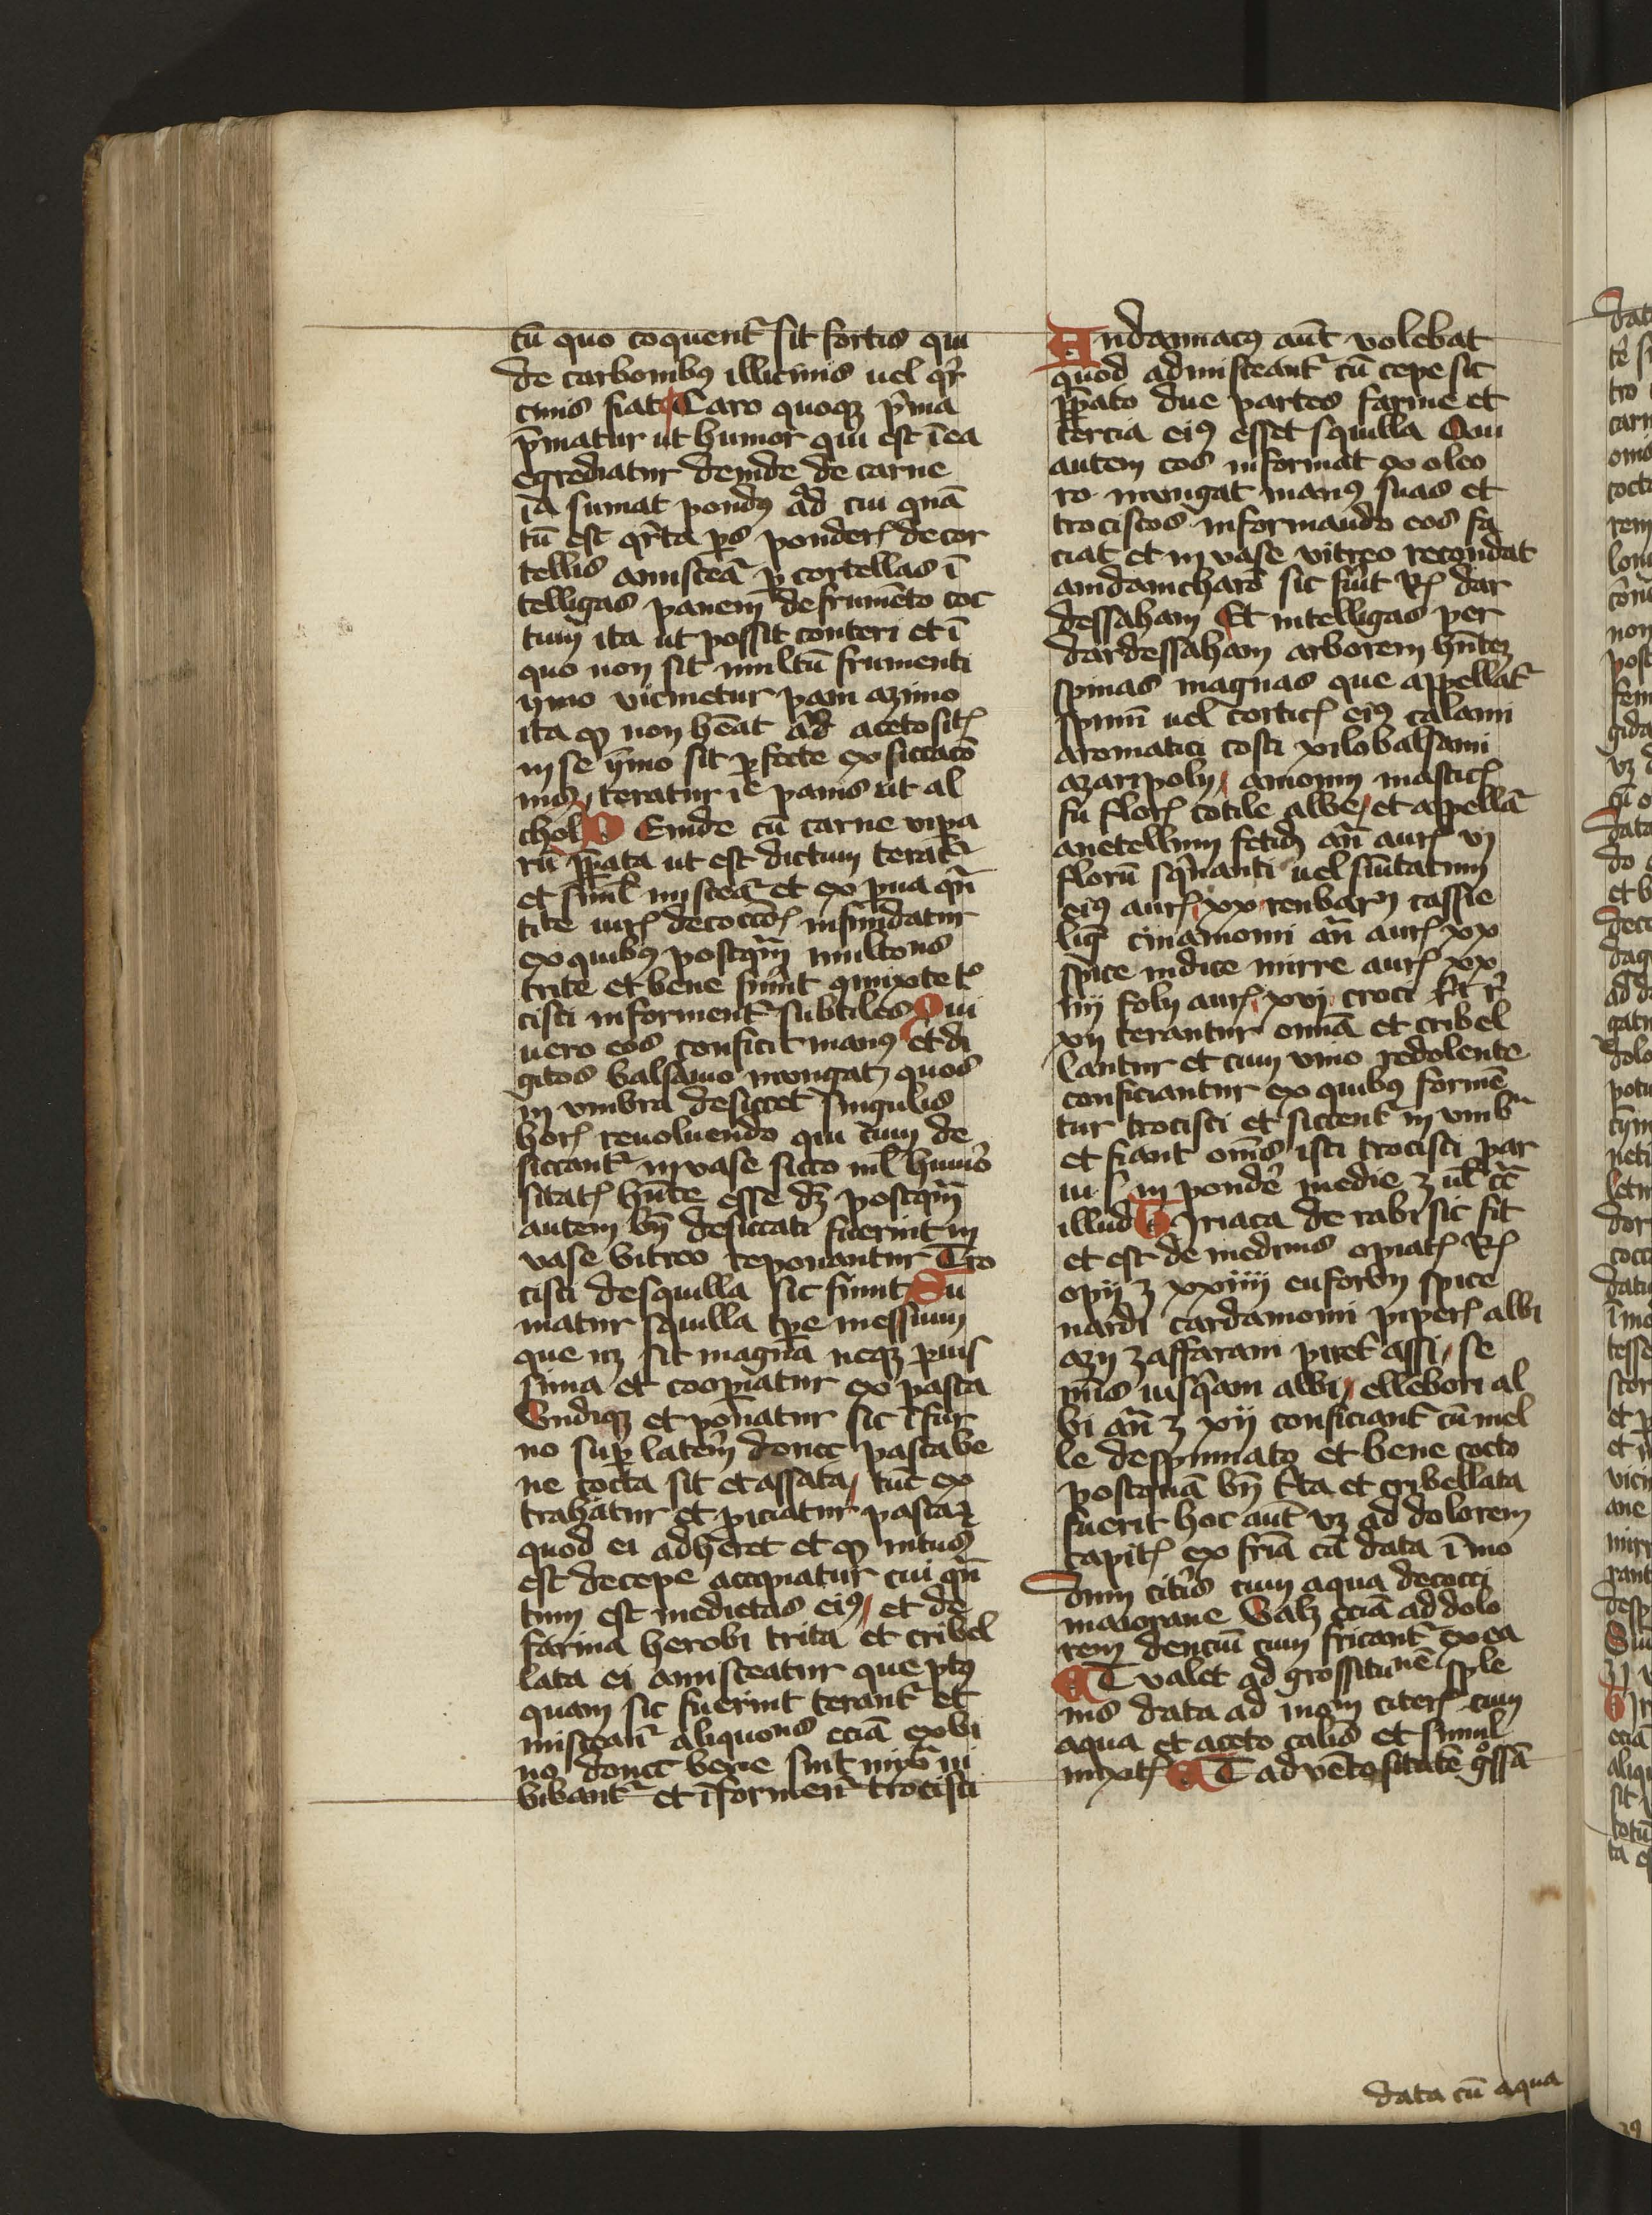 cū quo coquent᷑ sit fortis qui
de carbonibꝰ illicinis uel qr̄
cinis fiat Caro quoqꝫ p̄ma
p̄matur ut humor qui est ī ea
egrediatur deinde de carne
īa sumat pondꝰ ad cui quā
tū est qr̄ta ps ponder decor
tellis amisceā ꝑ cortellas ī
telligas panem de frumēto coc
tum ita ut possit conteri et ī
quo non sit multū frumenti
ymo vicinetur pani azimo
ita ꝙ non hēat ad acetosit
in se ymo sit ꝑfecte exsiccacō
nis, teratur panis ut al
chol Deinde cū carne vipa
rū ꝑꝑata ut est dictum terat᷑
et simˡ misceā et ex pua qn̄
tite iur decoccōꝭ infundatur
ex quibꝰ postqm̄ multons
trite et bene sunt ꝯmixte t°
cisci informent᷑ subtiles Qui
uero eos conficit manꝰ et di
gitos balsamo inungat quos
in vmbra desiccet singulis
hor reuoluendo qui cum de
siccant᷑ in vase sicco nˡ humo
sitat hn̄te esse dꝫ postqm̄
autem bn̄ desiccati fuerint in
vase vitreo reponantur Tro
cisci de squilla sic fiunt Su
matur squilla tp̄e messium
que nꝫ sit magna neqꝫ puis
sima et cooꝑiatur ex pasta
Vndiqꝫ et ponatur sic ī fur
no suꝑ laterm̄ donec pasta be
ne cocta sit et assata, tūc ex
trahatur et piciatur pasta ⁊
quod ei adheret et ꝙ intus
est de cepe accipiatur cui qn̄
tum est medietas eiꝰ, et de
farina herobi trita et cribel
lata ei amisceatur que ptꝰ
quam sic fuerint terant᷑ et
misceant᷑ aliquons eciā ex vi
no donec bene sint mixt̄ ni
bibant᷑ et ī forment᷑ trocisci
Andamacꝰ aūt volebat
quod admisceant᷑ cū cepe sic
ꝑꝑato due partes farine et
tercia eiꝰ esset squilla Qui
autem eos informat ex oleo
ro. inungat manꝰ suas et
trociscos informando eos fa
ciat et in vase vitreo recondat
andamcharo sic fiūt Rꝭ dar
dessaham Et intelligas per
dardessaham arborem hn̄teꝫ
spinas magnas que appellat᷑
spinū uel corticꝭ eiꝰ calami
aromatici costi xilobalsami
azari poly, amomi masticꝭ
fu florꝭ cotile albe, et appellā
anetellum fetidꝫ an̄ aurꝭ vj
florū sqnanti uel sūitatum
eiꝰ aurꝭ xx reubar cassie
liq̄ cinamomi an̄ aurꝭ xx
spice indice mirre aurꝭ xx
iiij foly aurꝭ xvj croci
xij terantur omīa et cribel
lantur et cum vino redolente
conficiantur ex quibꝰ formē
tur trocisci et siccent᷑ in vmbᵃ
et fiant omēs isti trocisci par
ui in pondē medie ʒ ul cc̄
illud Tiriaca de rabi sic fit
et est de medinis opiatꝭ Rꝭ
opij ʒ xxiiij euforbij spice
nardi cardamomi piperꝭ albi
azij zaffarani piret assi, se
mīs iusqiam albi, ellebori al
bi an̄ ʒ xij conficiant᷑ cū mel
le despumato et bene cocto
postquā bn̄ tta et cribellata
fuerit hoc aūt vꝫ ad dolorem
capitꝭ ex fria cā data ī mo
dum citis cum aqua decocci
maiorane Valꝫ eciā ad dolo
rem denciū cum fricant᷑ ex ea
Et valet ad grossitunē sple
nis data ad inom citerꝭ cum
aqua et aceto calis et simul
mixtꝭ Et ad vētositatē gssā
data cū aqua